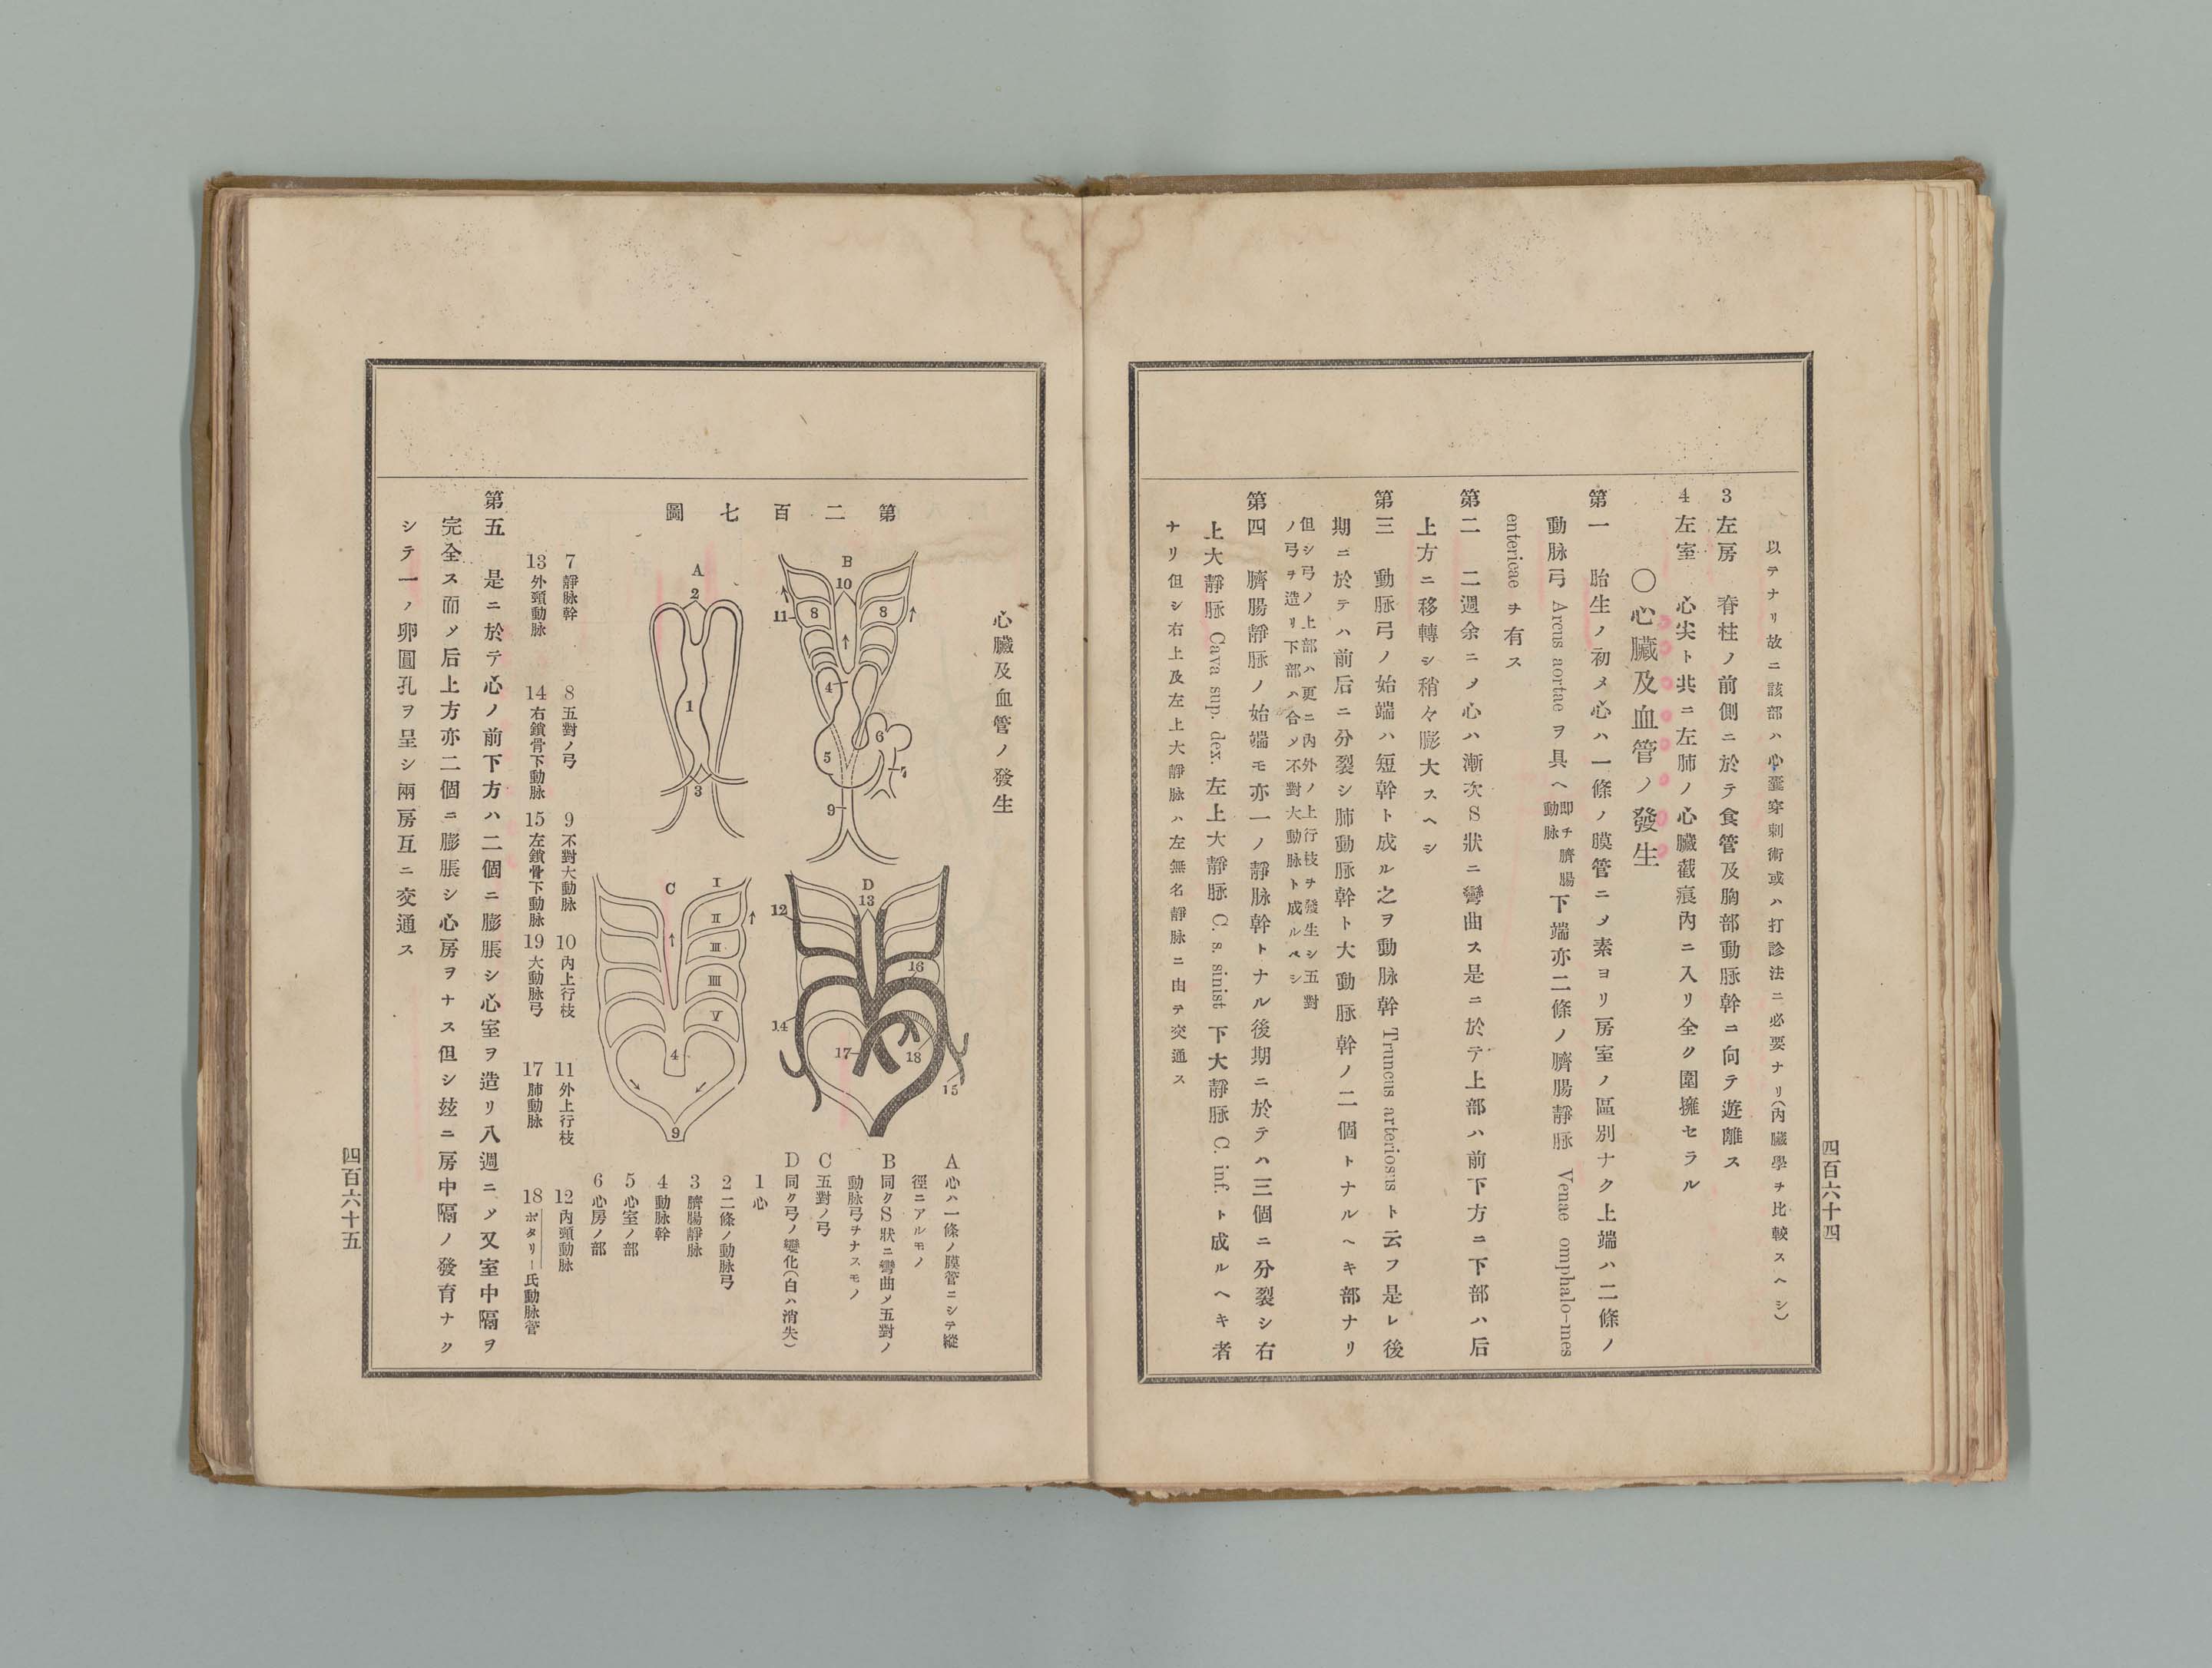 以テナリ故ニ該部ハ心囊穿刺術或ハ打診法ニ必要ナリ(內臟學ヲ比較スヘシ)
3 左房 脊柱ノ前側ニ於テ食管及胸部動脈幹ニ向テ遊離ス
4 左室 心尖ト共ニ左肺ノ心臟截痕內ニ入リ全ク圍擁セラル
〇心臟及血管ノ發生
第一 胎生ノ初メ心ハ一條ノ膜管ニメ素ヨリ房室ノ區別ナク上端ハ二條ノ
動脈弓 Arcus aortae ヲ具ヘ即チ臍腸動脈下端亦二條ノ臍腸靜脈 Venae omphalo-mes
entericae ヲ有ス
第二 二週余ニメ心ハ漸次S狀ニ彎曲ス是ニ於テ上部ハ前下方ニ下部ハ后
上方ニ移轉シ稍々膨大スヘシ
第三 動脈弓ノ始端ハ短幹ト成ル之ヲ動脈幹 Truncus arteriosus ト云フ是レ後
期ニ於テハ前后ニ分裂シ肺動脈幹ト大動脈幹ノ二個トナルヘキ部ナリ
但シ弓ノ上部ハ更ニ內外ノ上行枝ヲ發生シ五對
ノ弓ヲ造リ下部ハ合メ不對大動脈ト成ルベシ
第四 臍腸靜脈ノ始端モ亦一ノ靜脈幹トナル後期ニ於テハ三個ニ分裂シ右
上大靜脈 Cava sup. dex. 左上大靜脈 C. s. sinist 下大靜脈 C. inf. ト成ルヘキ者
ナリ但シ右上及左上大靜脈ハ左無名靜脈ニ由テ交通ス
四百六十四
心臟及血管ノ發生
第二百七圖
A
2
1
3
B
10
8
8
11
4
6
5
7
9
C
I
II
III
IIII
V
4
9
D
13
12
16
14
17
18
15
A 心ハ一條ノ膜管ニシテ縱
徑ニアルモノ
B 同クS狀ニ彎曲メ五對ノ
動脈弓ヲナスモノ
C 五對ノ弓
D 同ク弓ノ變化(白ハ消失)
1 心
2 二條ノ動脈弓
3 臍腸靜脈
4 動脈幹
5 心室ノ部
6 心房ノ部
7 靜脈幹 8 五對ノ弓 9 不對大動脈 10 內上行枝 11 外上行枝 12 內頸動脈
13 外頸動脈 14 右鎖骨下動脈 15 左鎖骨下動脈 19 大動脈弓 17 肺動脈 18 ボタリー氏動脈管
第五 是ニ於テ心ノ前下方ハ二個ニ膨脹シ心室ヲ造リ八週ニメ又室中隔ヲ
完全ス而メ后上方亦二個ニ膨脹シ心房ヲナス但シ玆ニ房中隔ノ發育ナク
シテ一ノ卵圓孔ヲ呈シ兩房互ニ交通ス
四百六十五